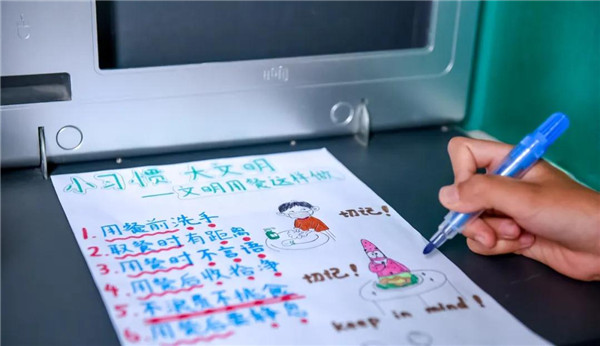 小习惯 大文明
——文明用餐这样做
1. 用餐前洗手
2. 取餐时有距离
3. 用餐时不言语
4. 用餐后收拾净
5. 不浪费不挑食
6. 用餐后要静息
切记！
切记！
keep in mind！